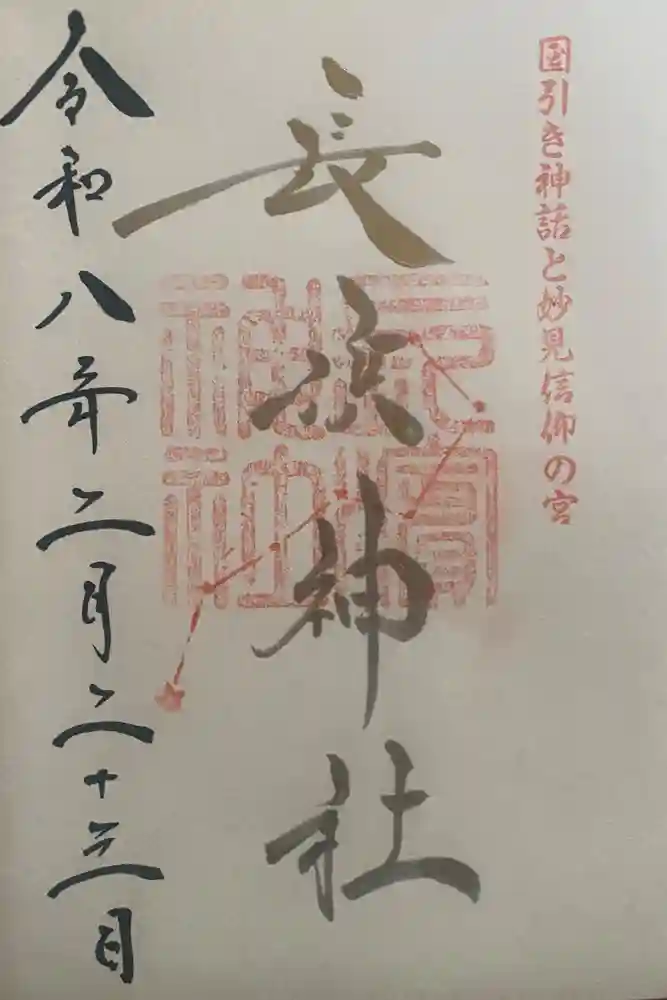 国引き神話と妙見信仰の宮
長浜神社
長濱神社
令和八年二月二十三日